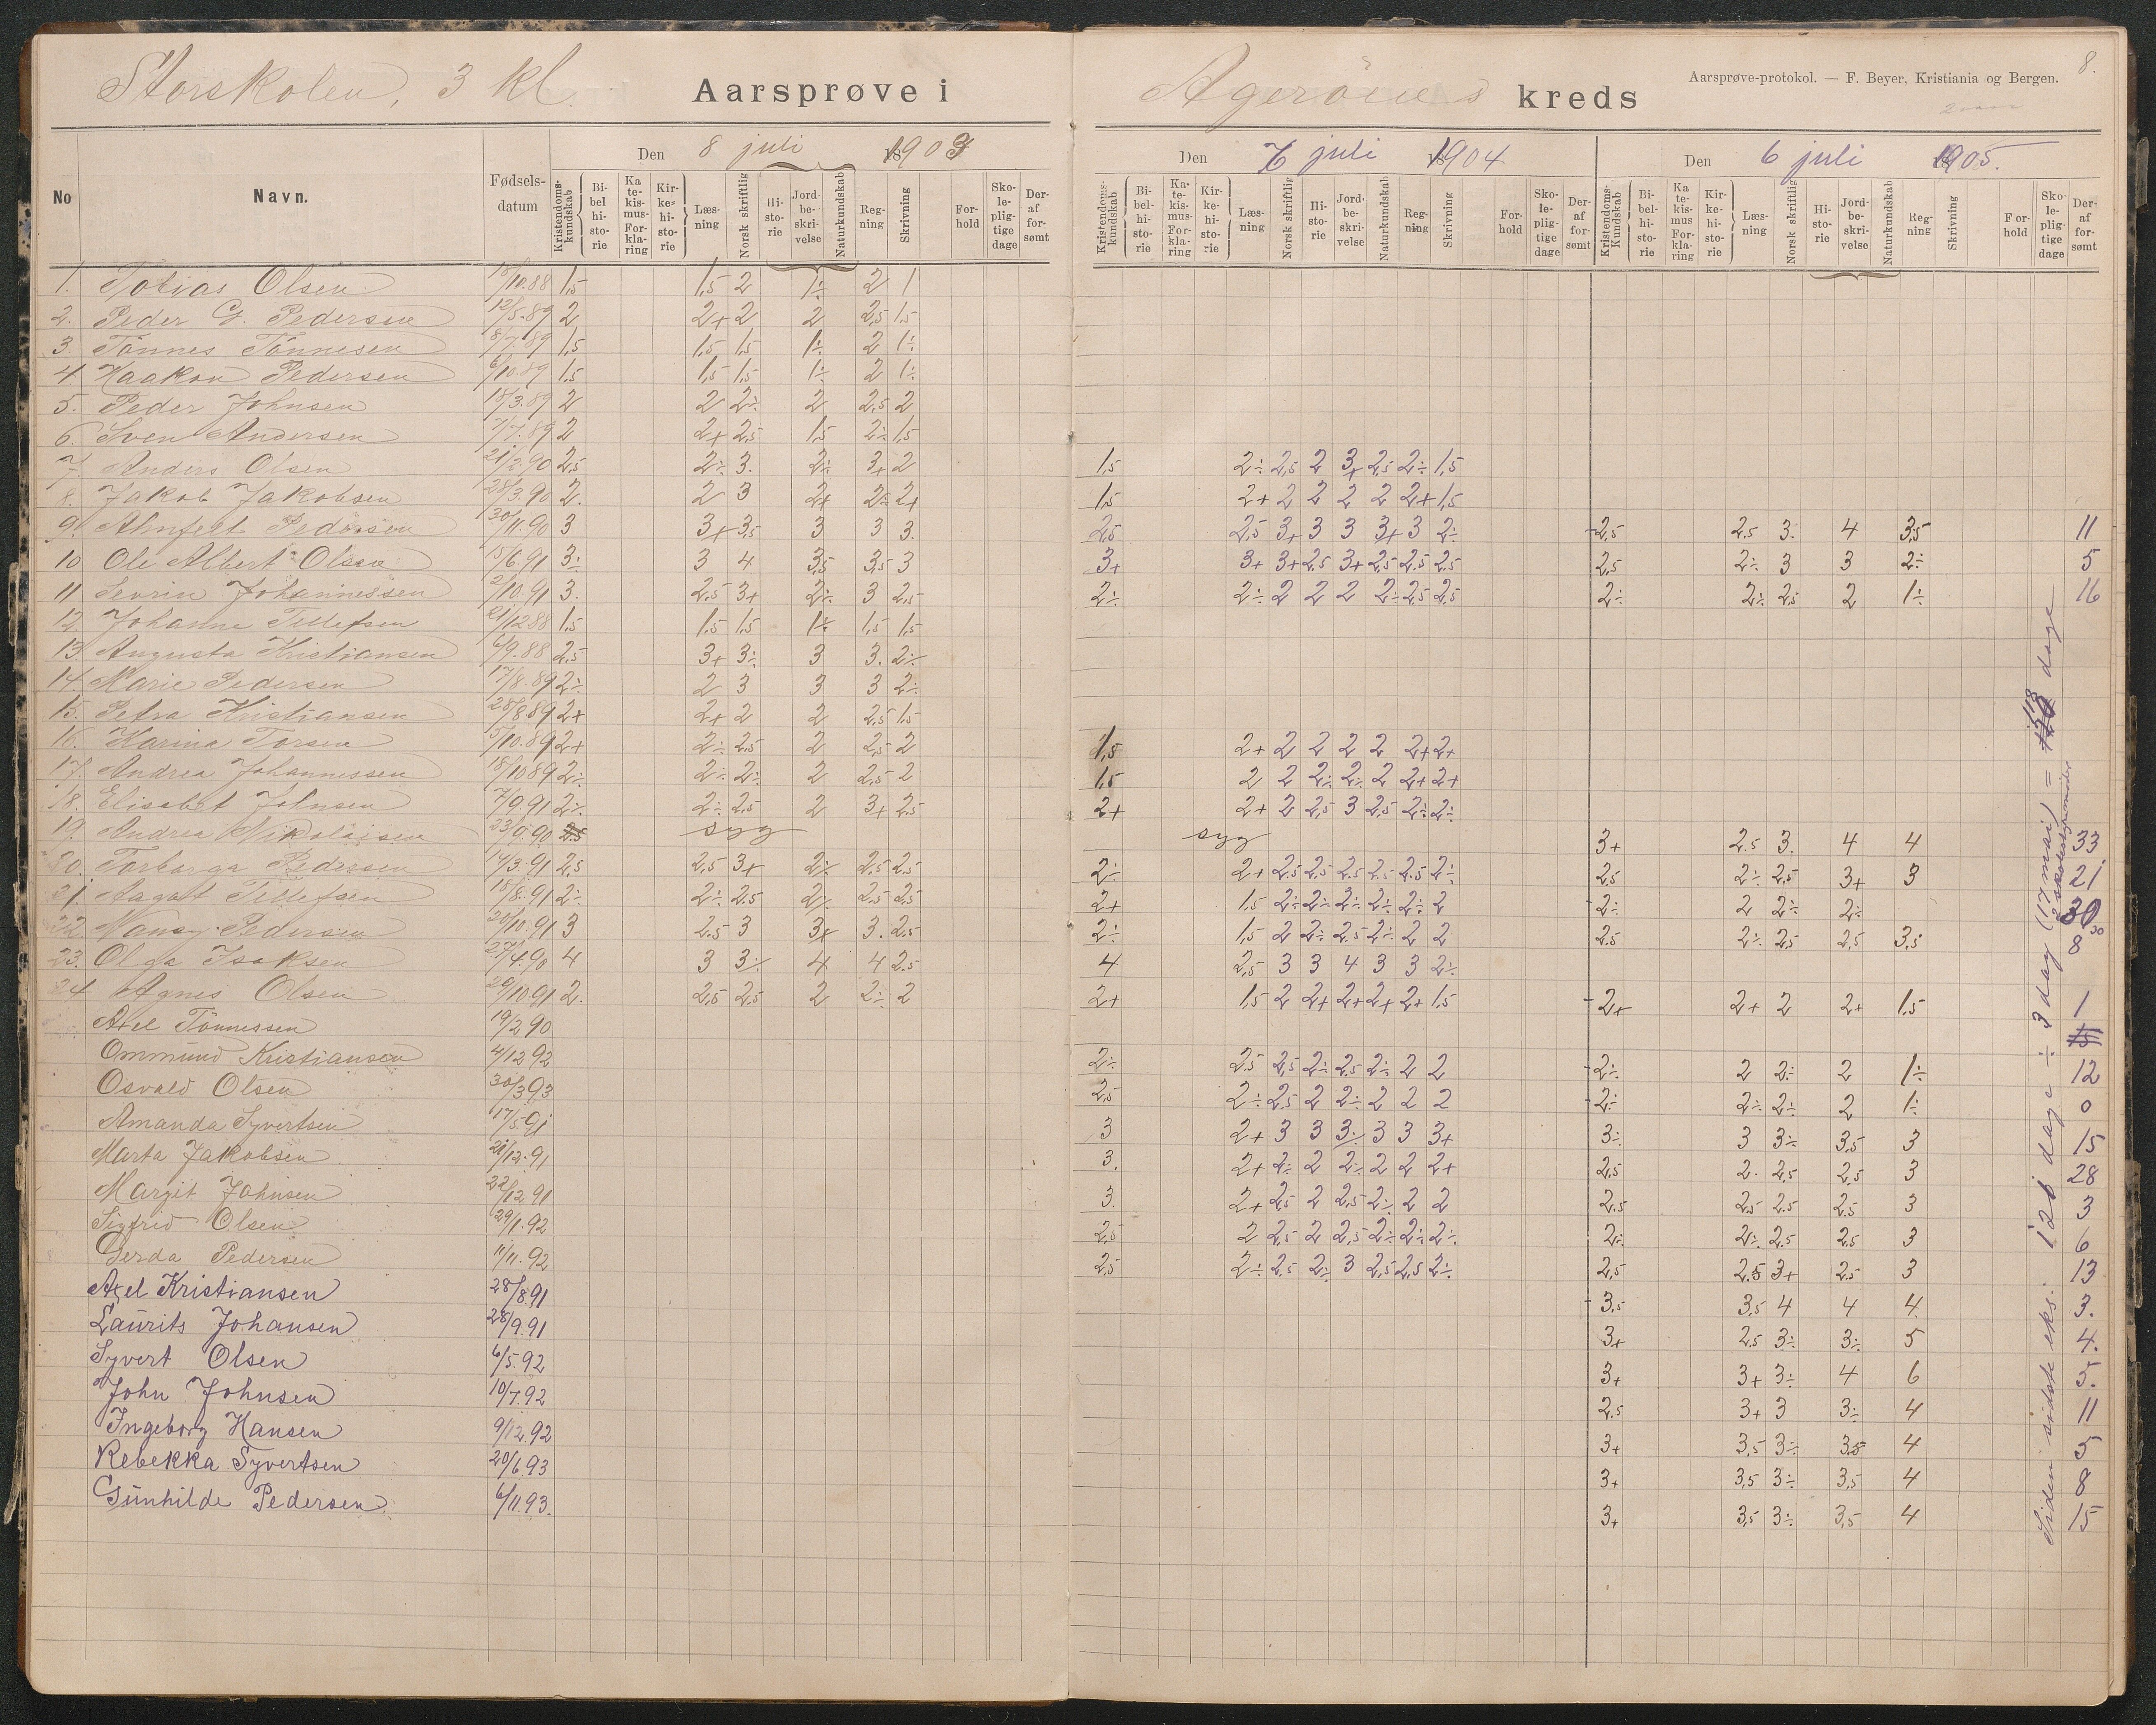 Storskolen, 3 kl. Aarsprøve i Agerøens kreds
Aarsprøve-protokol. — F. Beyer, Kristiania og Bergen. 8.
Den 8 juli 1903
Den 7 juli 1904
Den 6 juli 1905
No Navn. Fødselsdatum Kristendomskundskab Bibelhistorie Katekismus Forklaring Kirkehistorie Læsning Norsk skriftlig Historie Jordbeskrivelse Naturkundskab Regning Skrivning Forhold Skolepligtige dage Deraf forsømt
Kristendomskundskab Bibelhistorie Katekismus Forklaring Kirkehistorie Læsning Norsk skriftlig Historie Jordbeskrivelse Naturkundskab Regning Skrivning Forhold Skolepligtige dage Deraf forsømt
Kristendoms Kundskab Bibelhistorie Katekismus Forklaring Kirkehistorie Læsning Norsk skriftlig Historie Jordbeskrivelse Naturkundskab Regning Skrivning Forhold Skolepligtige dage Deraf forsømt
1. Tobias Olsen /10.88 1,5 1,5 2 1÷ 2 1
2. Peder G. Pedersen 12/5.89 2 2+ 2 2 2,5 1,5
3. Tönnes Tönnesen 8/7.89 1,5 1,5 1,5 1÷ 2 1÷
4. Haakon Pedersen 6/10.89 1,5 1,5 1,5 1÷ 2 1÷
5. Peder Johnsen 18/3.89 2 2 2÷ 2 2,5 2
6. Sven Andersen 7/7.89 2 2+ 2,5 1,5 2÷ 1,5
7. Anders Olsen 21/2.90 2,5 2÷ 3. 2÷ 3+ 2 1,5 2÷ 2,5 2 3+ 2,5 2÷ 1,5
8. Jakob Jakobsen 28/3.90 2. 2 3 2+ 2÷ 2+ 1,5 2+ 2 2 2 2 2+ 1,5
9. Alnfert Pedersen 30/11.90 3 3+ 3,5 3 3 3. 2,5 2,5 3+ 3 3 3+ 3 2÷ 2,5 2.5 3. 4 3,5 11
10 Ole Albert Olsen 15/6.91 3÷ 3 4 3,5 3,5 3 3+ 3+ 3+ 2,5 3+ 2,5 2,5 2,5 2,5 2÷ 3 3 2÷ 5
11 Sevrin Johannessen 2/10.91 3. 2,5 3+ 2÷ 3 2,5 2÷ 2÷ 2 2 2 2÷ 2,5 2,5 2÷ 2÷ 2,5 2 1÷ 16
12 Johanne Tellefsen 21/12 88 1,5 1,5 1,5 1÷ 1,5 1,5
13 Augusta Kristiansen 6/9.88 2,5 3+ 3÷ 3 3. 2÷
14. Marie Pedersen 17/8.89 2÷ 2 3 3 3 2÷
15. Petra Kristiansen 28/8.89 2+ 2+ 2 2 2,5 1,5
16. Karina Torsen 5/10.89 2+ 2÷ 2,5 2 2,5 2 1,5 2+ 2 2 2 2 2+ 2+
17. Andrea Johannessen 18/10 89 2÷ 2÷ 2÷ 2 2,5 2 1,5 2 2 2÷ 2÷ 2 2+ 2+
18. Elisabet Johnsen 7/9.91 2÷ 2÷ 2,5 2 3+ 2,5 2+ 2+ 2 2,5 3 2,5 2÷ 2÷
19. Andrea Nikolaisen 23/9.90 2.5 syg syg 3+ 2.5 3. 4 4 33
20. Torborga Pedersen 14/3.91 2,5 2,5 3+ 2÷ 2,5 2,5 2÷ 2+ 2,5 2,5 2,5 2,5 2.5 2÷ 2,5 2÷ 2,5 3+ 3 21
21. Aagot Tellefsen 15/8.91 2÷ 2÷ 2.5 2÷ 2,5 2,5 2+ 1,5 2÷ 2÷ 2÷ 2÷ 2÷ 2 2÷ 2 2÷ 2÷ 30
22. Nancy Pedersen 20/10.91 3 2.5 3 3+ 3. 2,5 2÷ 1,5 2 2÷ 2,5 2÷ 2 2 2.5 2÷ 2,5 2,5 3,5 8
23. Olga Isaksen 27/4.90 4 3 3÷ 4 4 2.5 4 2,5 3 3 4 3 3 2÷
24 Agnes Olsen 29/10.91 2. 2,5 2,5 2 2÷ 2 2+ 1,5 2 2+ 2+ 2+ 2+ 1,5 2+ 2+ 2 2+ 1,5 1
Axel Tönnessen 19/2 90
Ommund Kristiansen 4/12 92 2÷ 2,5 2,5 2÷ 2,5 2÷ 2 2 2÷ 2 2÷ 2 1÷ 12
Osvald Olsen 30/3.93 2,5 2÷ 2,5 2 2÷ 2 2 2 2÷ 2÷ 2÷ 2 1÷ 0
Amanda Syvertsen 17/5.91 3 2+ 3 3 3÷ 3 3 3+ 3÷ 3 3÷ 3,5 3 15
Marta Jakobsen 21/12.91 3. 2+ 2÷ 2 2÷ 2 2 2+ 2,5 2. 2,5 2,5 3 28
Margit Johnsen 22/12 91 3. 2+ 2,5 2 2,5 2÷ 2 2 2.5 2,5 2.5 2.5 3 3
Sigfrid Olsen 29/1.92 2,5 2 2,5 2 2,5 2÷ 2÷ 2÷ 2÷ 2÷ 2.5 2.5 3 6
Gerda Pedersen 11/11.92 2,5 2÷ 2.5 2÷ 3 2,5 2,5 2÷ 2,5 2.5 3+ 2.5 3 13
Axel Kristiansen 28/8.91 3,5 3,5 4 4 4. 3.
Laurits Johansen 28/9.91 3+ 2.5 3÷ 3÷ 5 4.
Syvert Olsen 6/5.92 3+ 3+ 3÷ 4 6 5.
John Johnsen 10/7.92 2.5 3+ 3 3÷ 4 11
Ingeborg Hansen 9/12.92 3+ 3,5 3÷ 3,5 4 5
Rebekka Syvertsen 20/6.93 3+ 3,5 3÷ 3,5 4 8
Gunhilde Pedersen 6/11.93. 3+ 3,5 3÷ 3,5 4 15
Siden sidste eks. 121 dage ÷ 3 dag (17 mai) = 118 dage